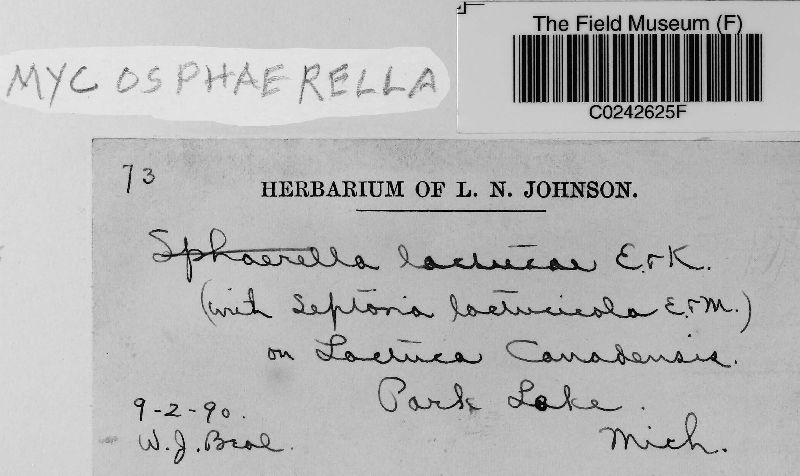 The Field Museum (F)
C0242625F
MYCOSPHAERELLA
73
HERBARIUM OF L. N. JOHNSON.
Sphaerella lactucae E. & K.
(with Septoria lactucicola E. & M.)
on Lactuca Canadensis.
Park Lake.
Mich.
9-2-90.
W. J. Beal.